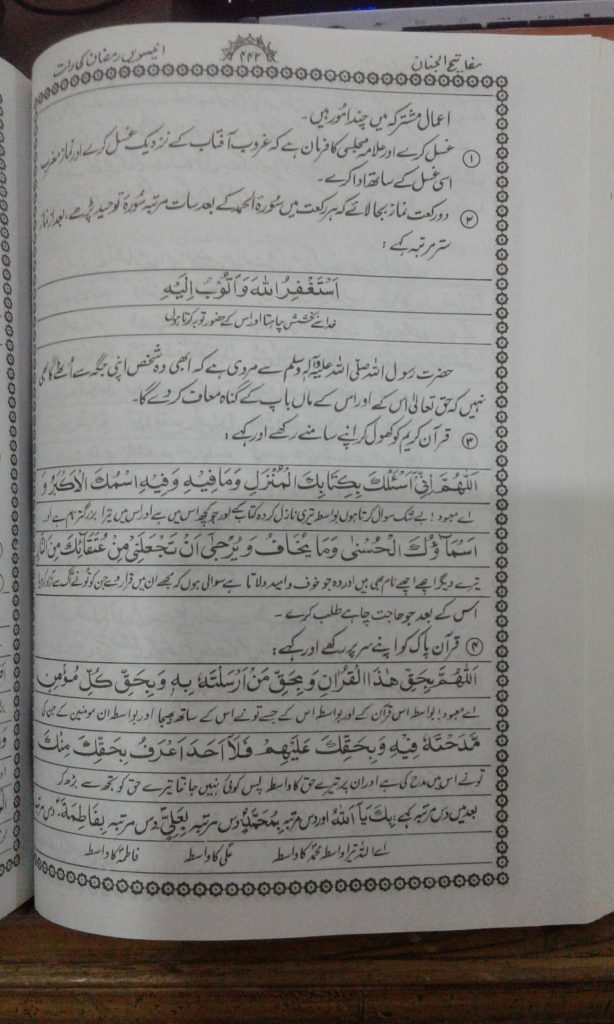 مفاتیح الجنان
۴۴۲
انیسویں رمضان کی رات
اعمال مشترکہ میں چند امور ہیں۔
① غسل کرے اور علامہ مجلسی کا فرمان ہے کہ غروب آفتاب کے نزدیک غسل کرے اور نماز مغرب
اسی غسل کے ساتھ ادا کرے۔
② دو رکعت نماز بجا لائے کہ ہر رکعت میں سورۃ الحمد کے بعد سات مرتبہ سورۃ توحید پڑھے، بعد از نماز
ستر مرتبہ کہے:
اَسْتَغْفِرُ اللهَ وَاَتُوْبُ اِلَيْهِ
خدا سے بخشش چاہتا اور اس کے حضور توبہ کرتا ہوں
حضرت رسول اللہ صلی اللہ علیہ وآلہ وسلم سے مروی ہے کہ ابھی وہ شخص اپنی جگہ سے اُٹھے گا بھی
نہیں کہ حق تعالیٰ اس کے اور اس کے ماں باپ کے گناہ معاف کر دے گا۔
③ قرآن کریم کو کھول کر اپنے سامنے رکھے اور کہے:
اَللّٰهُمَّ اِنِّيْ اَسْئَلُكَ بِكِتَابِكَ الْمُنْزَلِ وَمَا فِيْهِ وَفِيْهِ اسْمُكَ الْاَكْبَرُ وَ
اے معبود! بے شک سوال کرتا ہوں بواسطہ تیری نازل کردہ کتاب کے اور جو کچھ اس میں ہے اور اس میں تیرا بزرگتر نام ہے اور
اَسْمَاؤُكَ الْحُسْنٰى وَمَا يُخَافُ وَيُرْجٰى اَنْ تَجْعَلَنِيْ مِنْ عُتَقَائِكَ مِنَ النَّارِ
تیرے دیگر اچھے اچھے نام بھی ہیں اور وہ جو خوف و امید دلاتا ہے سوالی ہوں کہ مجھے ان میں قرار دے جن کو تو نے آگ سے آزاد کر دیا
اس کے بعد جو حاجت چاہے طلب کرے۔
④ قرآن پاک کو اپنے سر پر رکھے اور کہے:
اَللّٰهُمَّ بِحَقِّ هٰذَا الْقُرْاٰنِ وَبِحَقِّ مَنْ اَرْسَلْتَهٗ بِهٖ وَبِحَقِّ كُلِّ مُؤْمِنٍ
اے معبود! بواسطہ اس قرآن کے اور بواسطہ اس کے جسے تو نے اس کے ساتھ بھیجا اور بواسطہ ان مومنین کے جن کی
مَّدَحْتَهٗ فِيْهِ وَبِحَقِّكَ عَلَيْهِمْ فَلَا اَحَدَ اَعْرَفُ بِحَقِّكَ مِنْكَ
تو نے اس میں مدح کی ہے اور ان پر تیرے حق کا واسطہ پس کوئی نہیں جانتا تیرے حق کو تجھ سے بڑھ کر
بعد میں دس مرتبہ کہے: بِكَ يَا اَللهُ اور دس مرتبہ بِمُحَمَّدٍ دس مرتبہ بِعَلِيٍّ، دس مرتبہ بِفَاطِمَةَ، دس مرتبہ
اے اللہ تیرا واسطہ محمد کا واسطہ علی کا واسطہ فاطمہ کا واسطہ